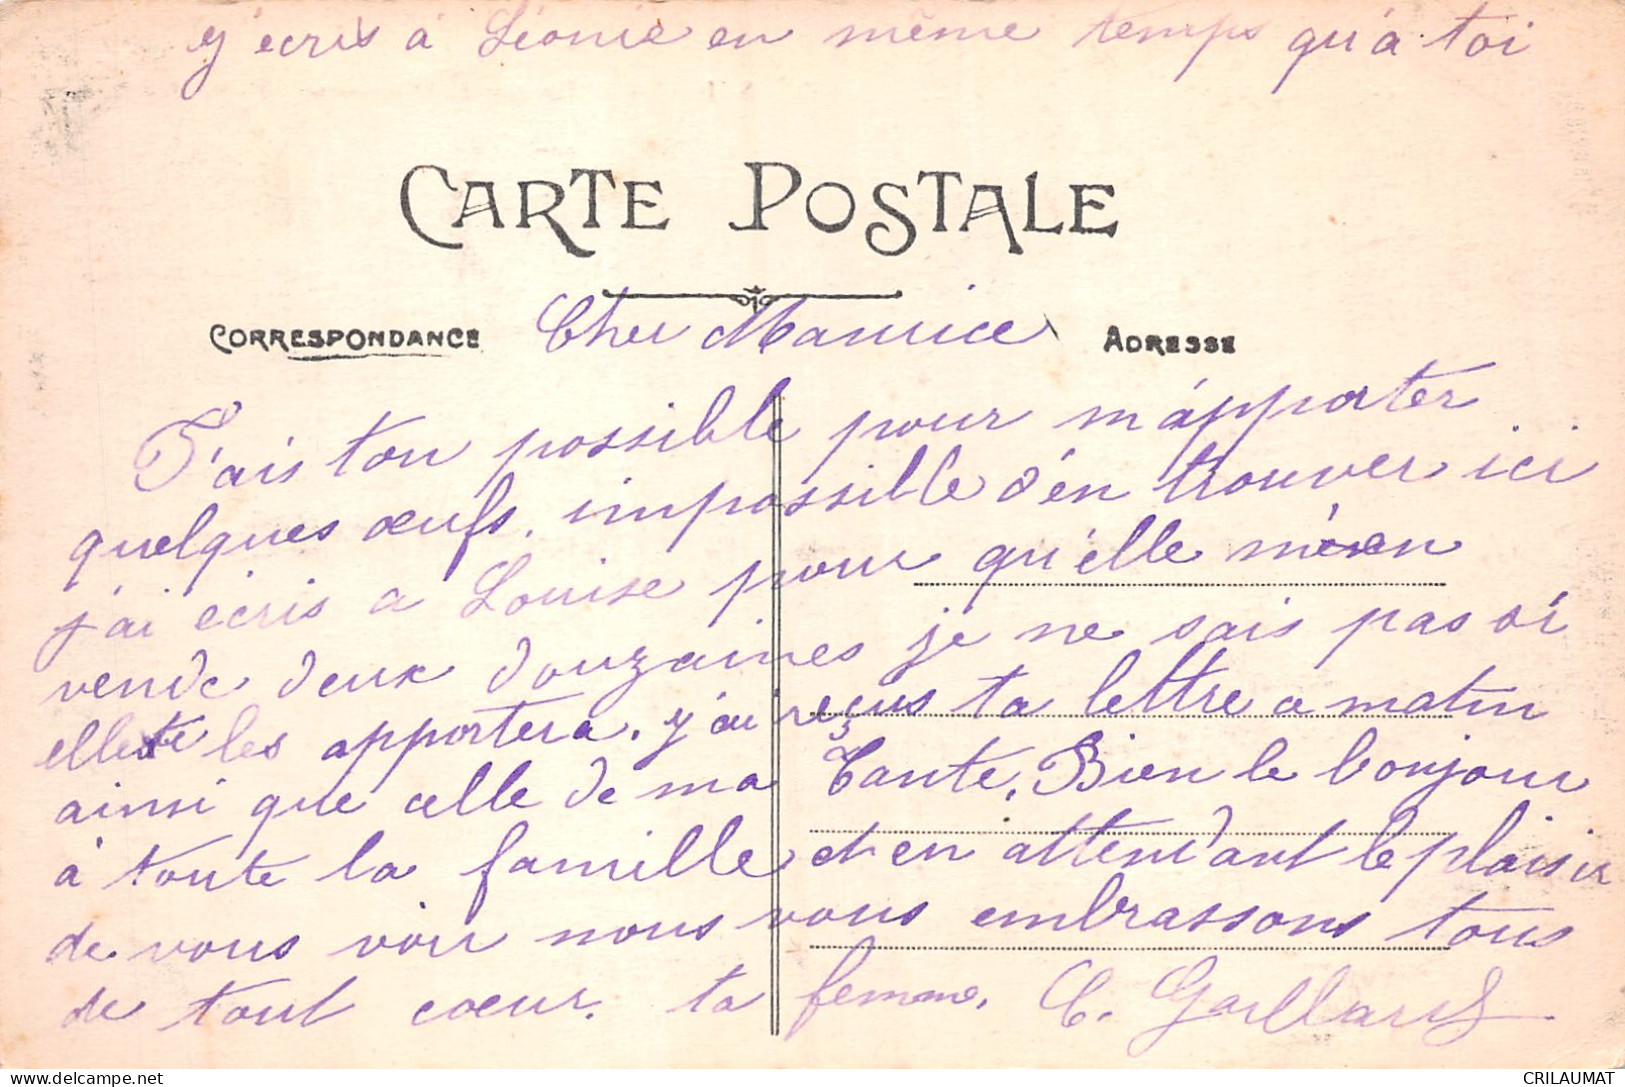 y'écris à Léonie en même temps qu'à toi
CARTE POSTALE
CORRESPONDANCE
Cher Maurice
ADRESSE
Fais ton possible pour m'apporter
quelques œufs. impossible d'en trouver ici
j'ai écris a Louise pour qu'elle m'en
vende deux douzaines je ne sais pas si
elle te les apportera. j'ai reçus ta lettre a matin
ainsi que celle de ma Tante. Bien le bonjour
à toute la famille et en attendant le plaisir
de vous voir nous vous embrassons tous
de tout cœur. ta femme. C. Gaillard
delcampe.net
CRILAUMAT